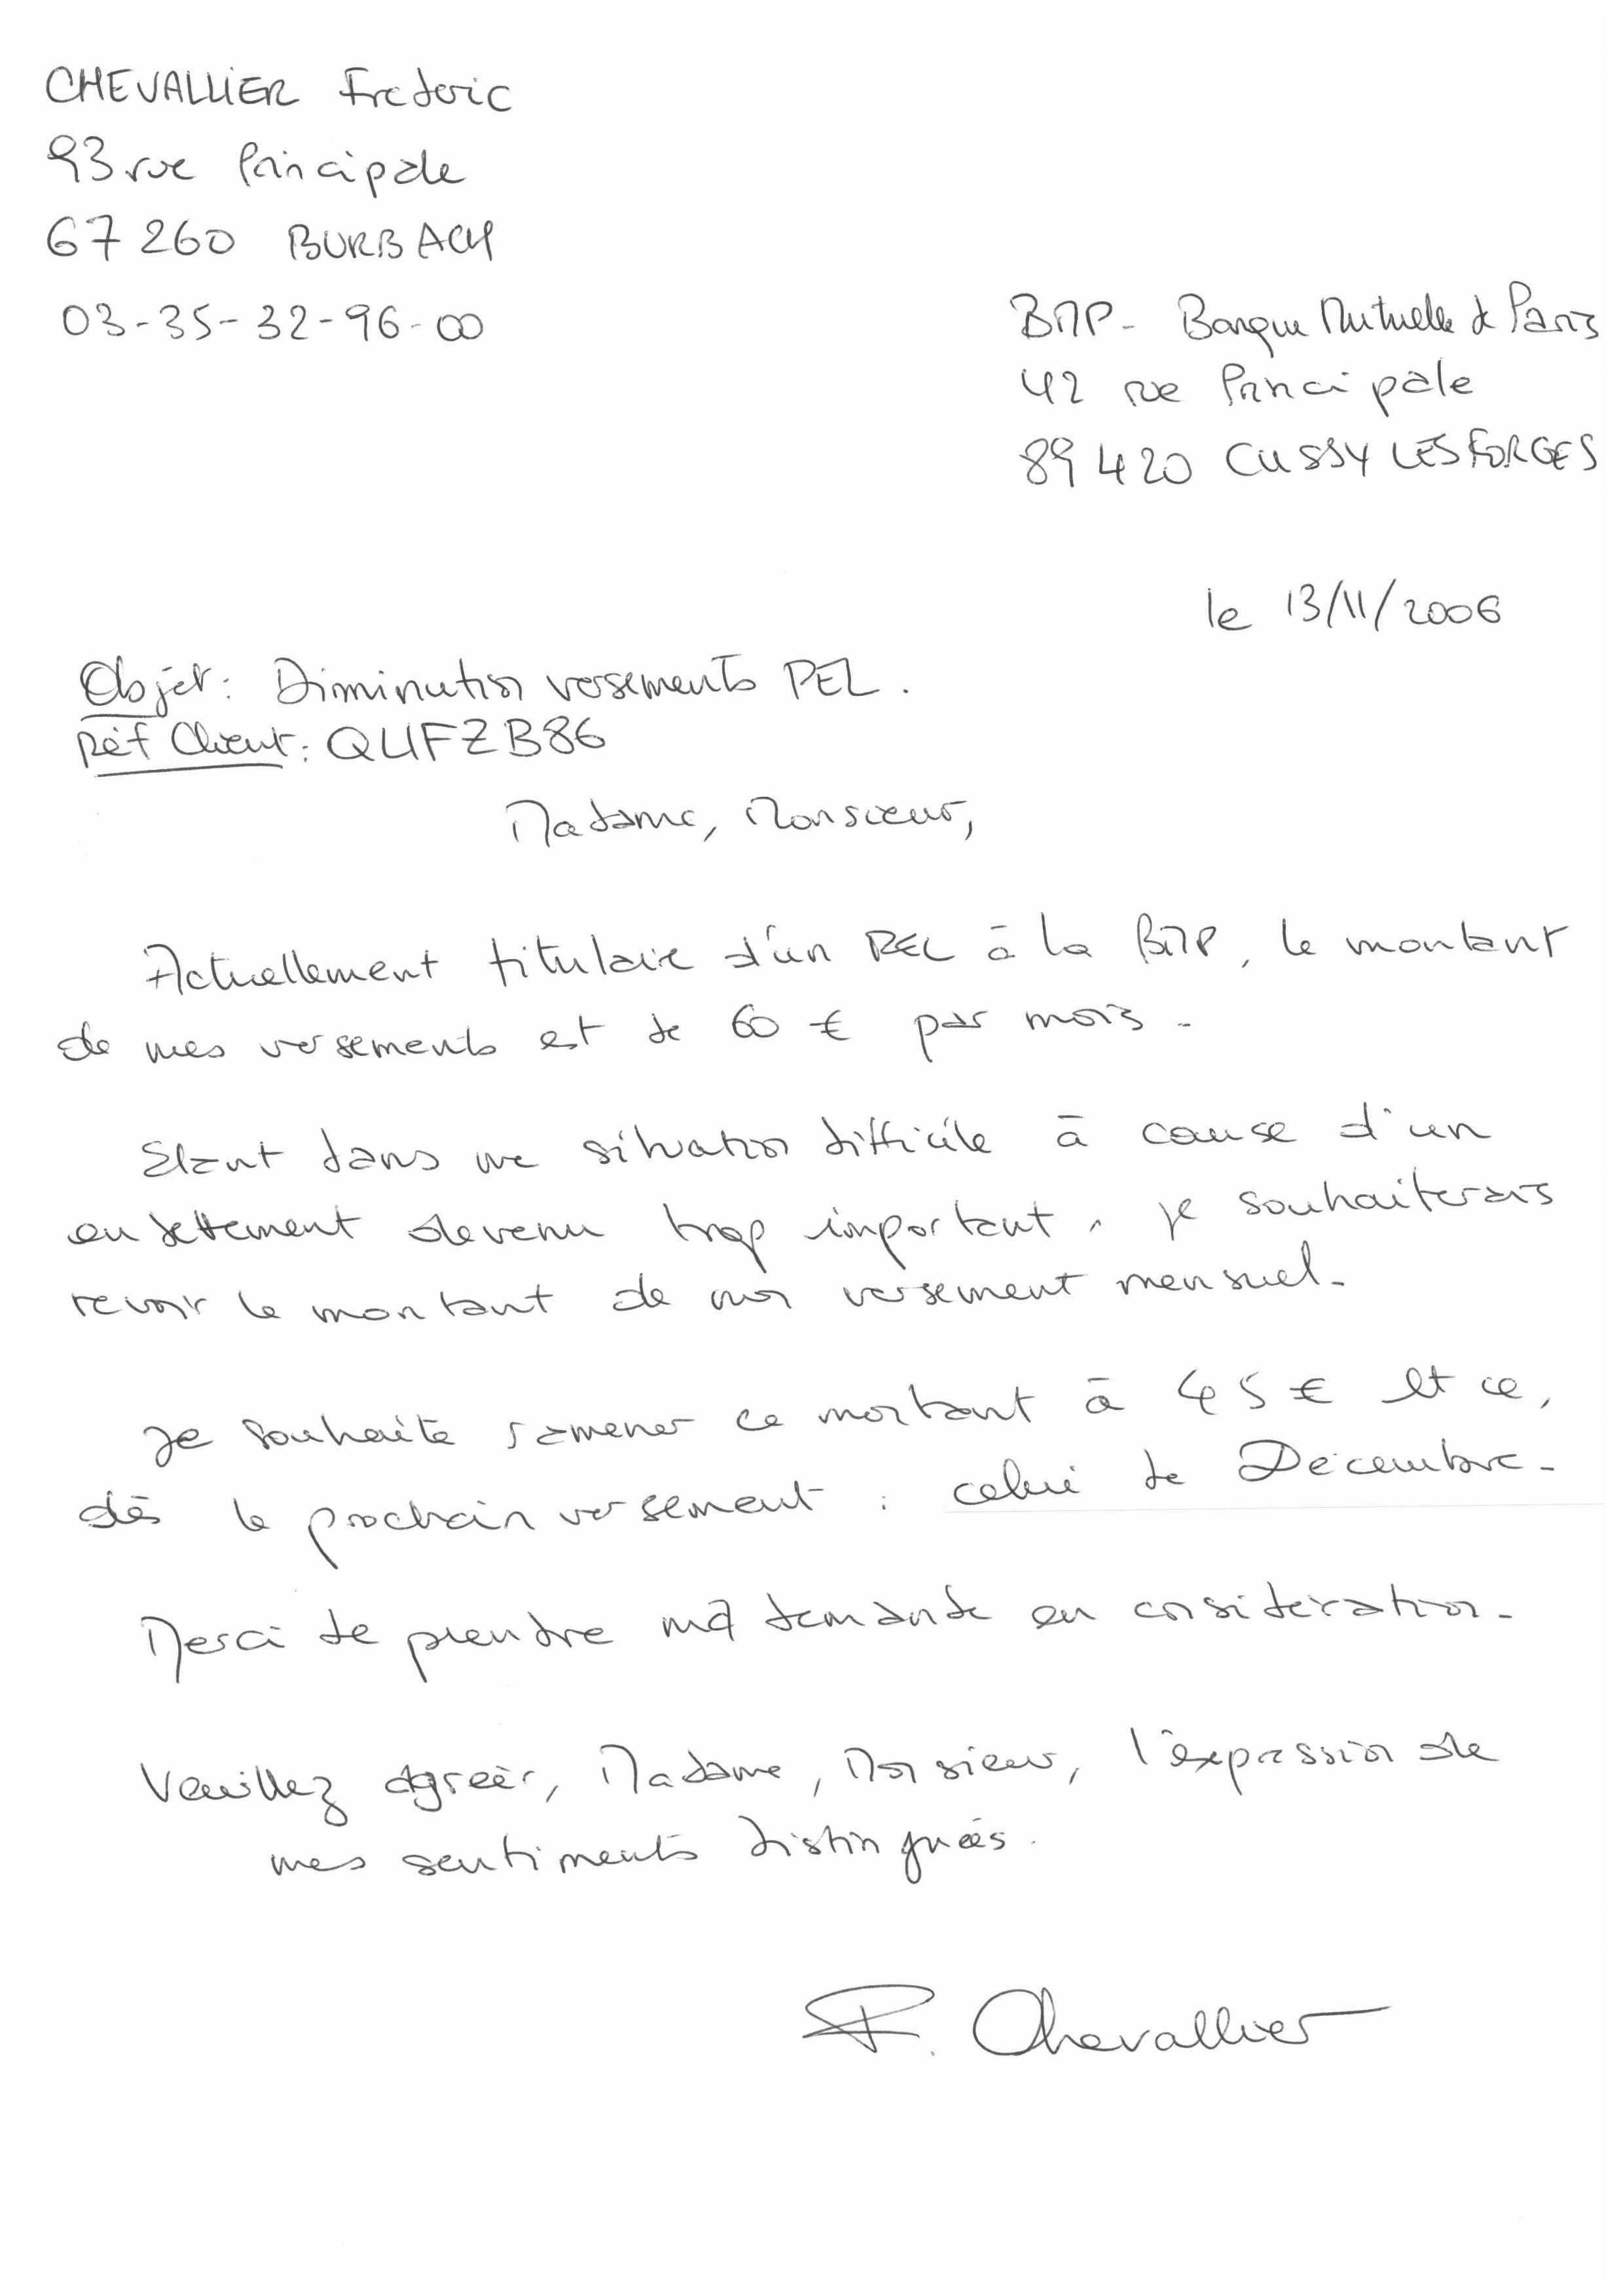 CHEVALLIER Frederic
93 rue Principale
67260 BURBACH
03-35-32-96-00
BMP - Banque Mutuelle de Paris
42 rue Principale
89420 CUSSY LES FORGES
le 13/11/2006
Objet: Diminution versements PEL.
Réf Client: QUFZB86
Madame, Monsieur,
Actuellement titulaire d'un PEL à la BMP, le montant
de mes versements est de 60 € par mois.
Etant dans une situation difficile à cause d'un
endettement devenu trop important, je souhaiterais
revoir le montant de mon versement mensuel.
Je souhaite ramener ce montant à 45 € et ce,
dès le prochain versement : celui de Décembre.
Merci de prendre ma demande en considération.
Veuillez agréer, Madame, Monsieur, l'expression de
mes sentiments distingués.
F. Chevallier